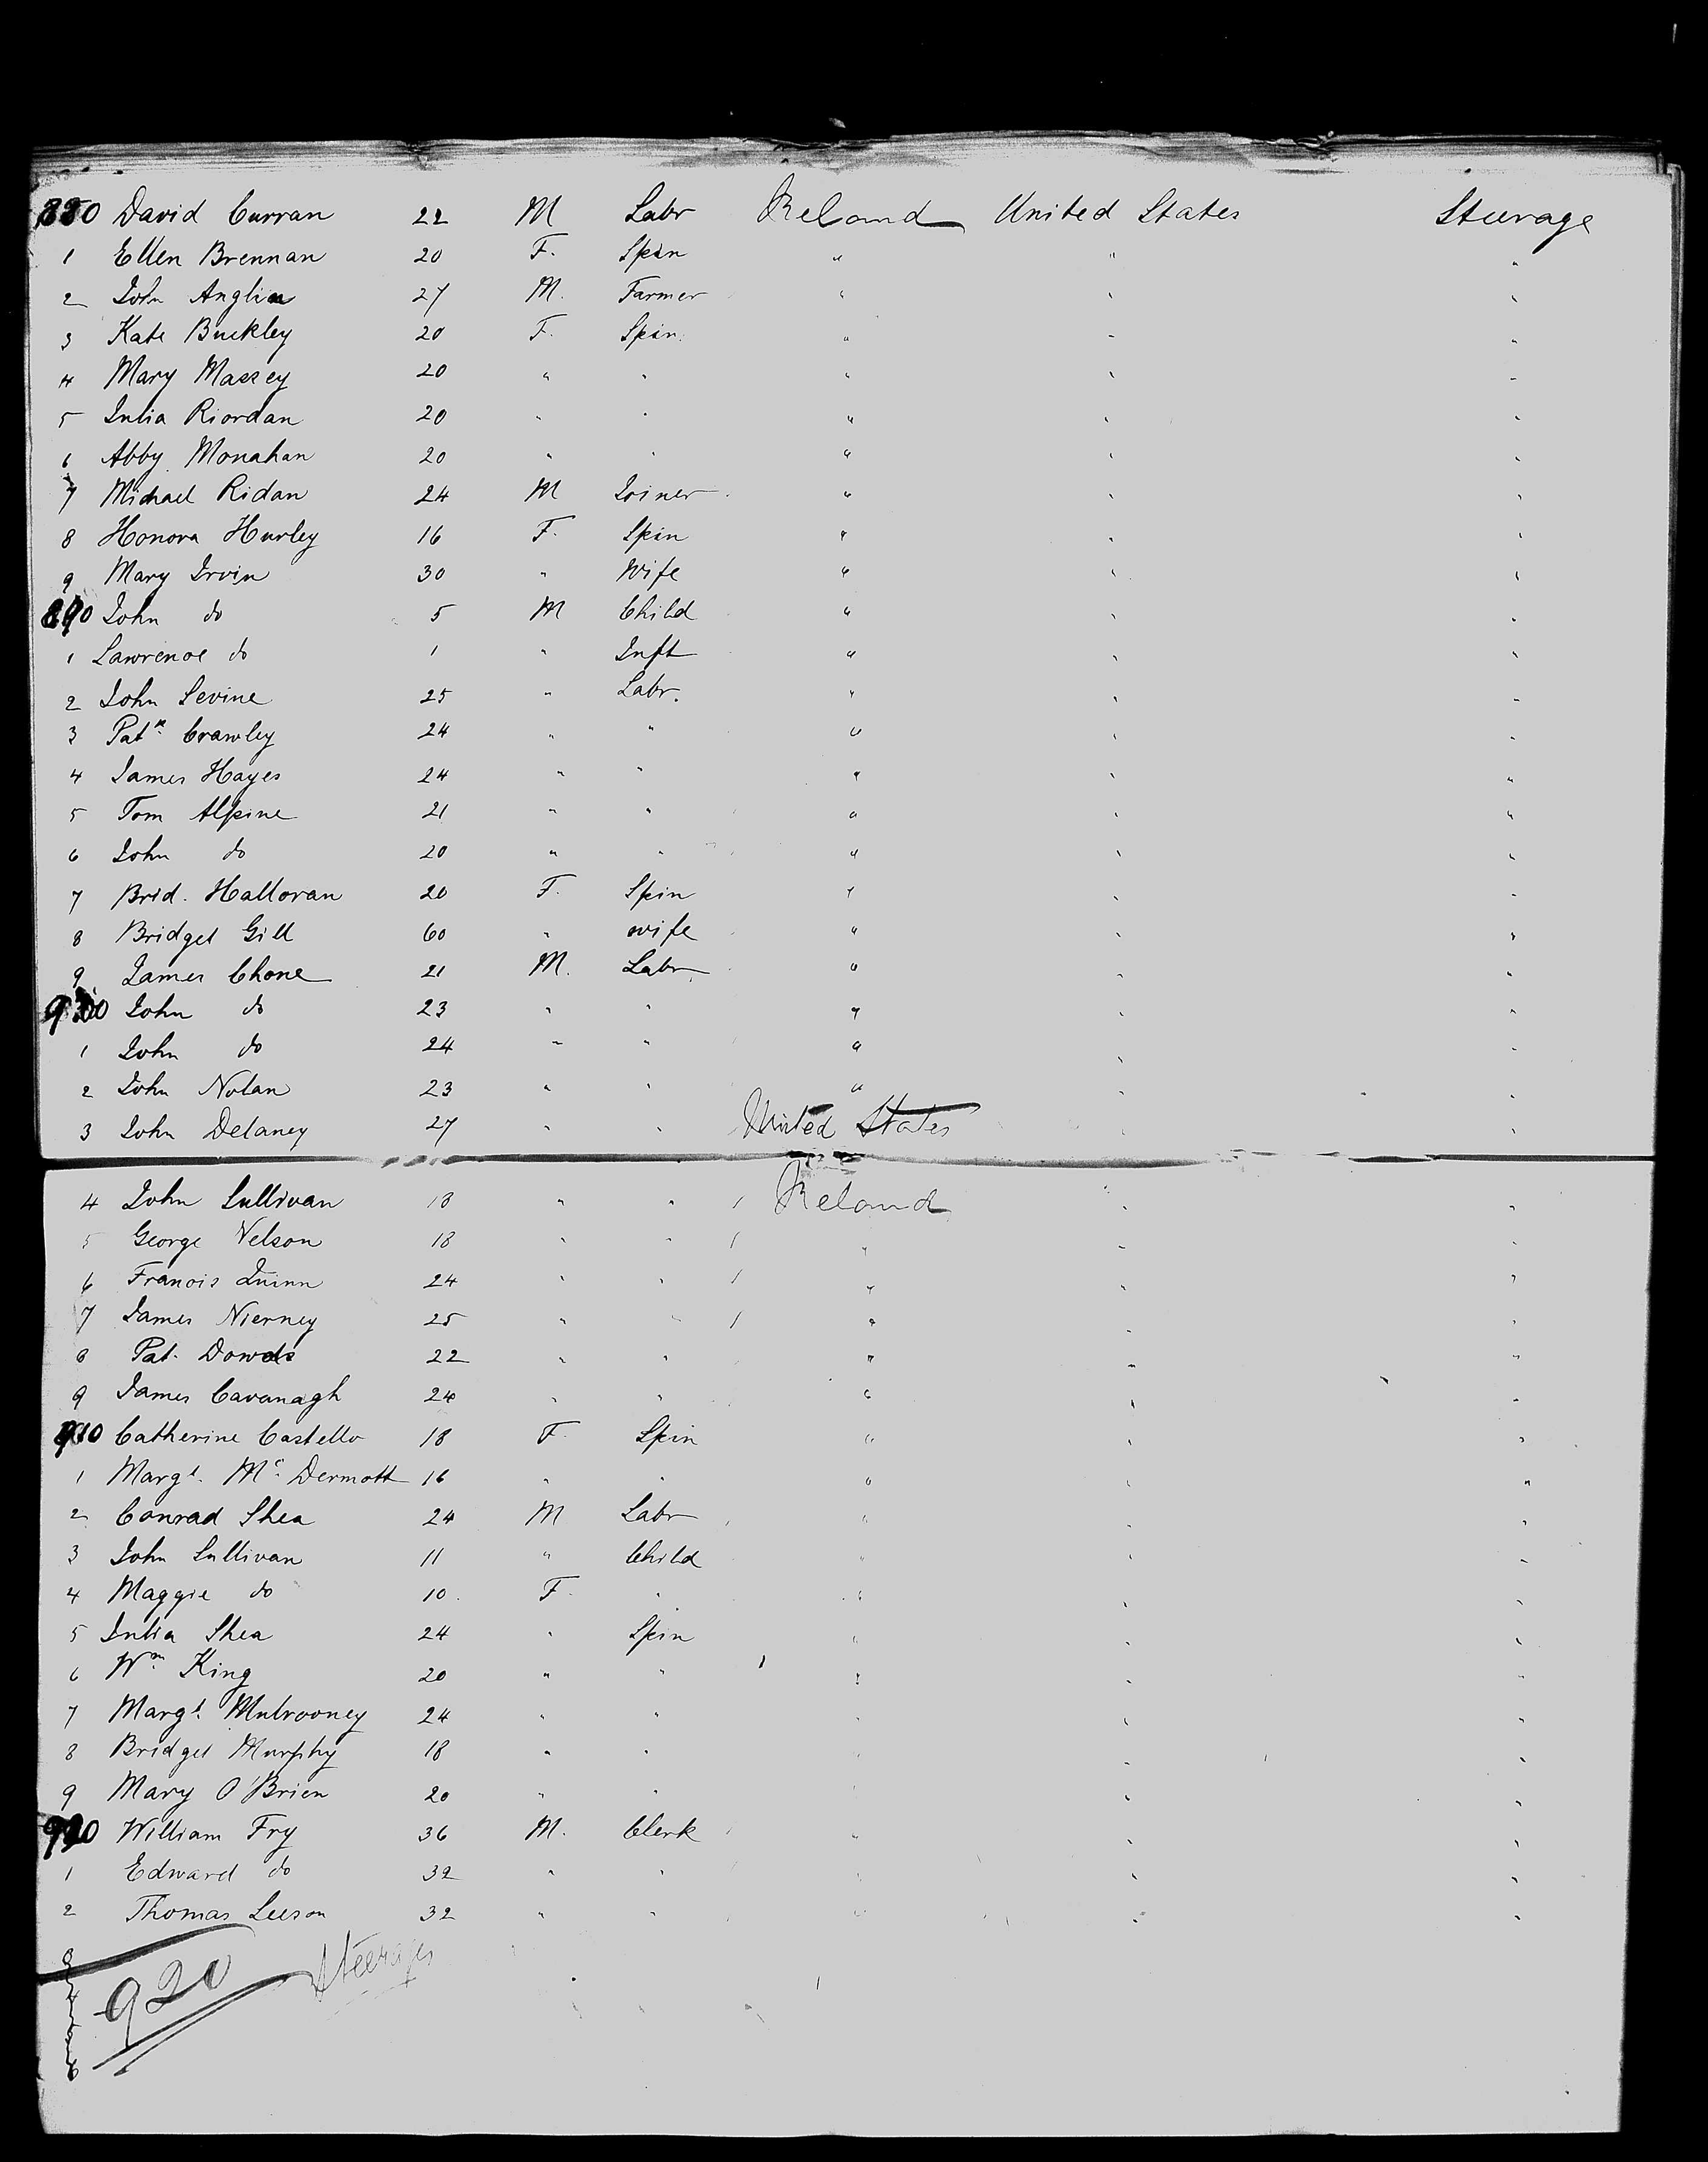 880 David Curran 22 M Labr Ireland United States Steerage
1 Ellen Brennan 20 F. Spin " " "
2 John Anglin 27 M. Farmer " " "
3 Kate Buckley 20 F. Spin. " " "
4 Mary Massey 20 " " " " "
5 Julia Riordan 20 " " " " "
6 Abby Monahan 20 " " " " "
7 Michael Ridan 24 M Joiner " " "
8 Honora Hurley 16 F. Spin " " "
9 Mary Irvin 30 " Wife " " "
890 John do 5 M Child " " "
1 Lawrence do 1 " Inft " " "
2 John Levine 25 " Labr. " " "
3 Patk. Crawley 24 " " " " "
4 James Hayes 24 " " " " "
5 Tom Alpine 21 " " " " "
6 John do 20 " " " " "
7 Brid. Halloran 20 F. Spin " " "
8 Bridget Gill 60 " wife " " "
9 James Chone 21 M. Labr. " " "
900 John do 23 " " " " "
1 John do 24 " " " " "
2 John Nolan 23 " " " " "
3 John Delaney 27 " " United States " "
4 John Sullivan 18 " " Ireland " "
5 George Nelson 18 " " " " "
6 Francis Quinn 24 " " " " "
7 James Nierney 25 " " " " "
8 Pat. Dowds 22 " " " " "
9 James Cavanagh 24 " " " " "
910 Catherine Castello 18 F. Spin " " "
1 Margt. Mc. Dermott 16 " " " " "
2 Conrad Shea 24 M Labr " " "
3 John Sullivan 11 " Child " " "
4 Maggie do 10. F. " " " "
5 Julia Shea 24 " Spin " " "
6 Wm. King 20 " " " " "
7 Margt. Mulrooney 24 " " " " "
8 Bridget Murphy 18 " " " " "
9 Mary O'Brien 20 " " " " "
920 William Fry 36 M. Clerk " " "
1 Edward do 32 " " " " "
2 Thomas Leeson 32 " " " " "
920 Steerages